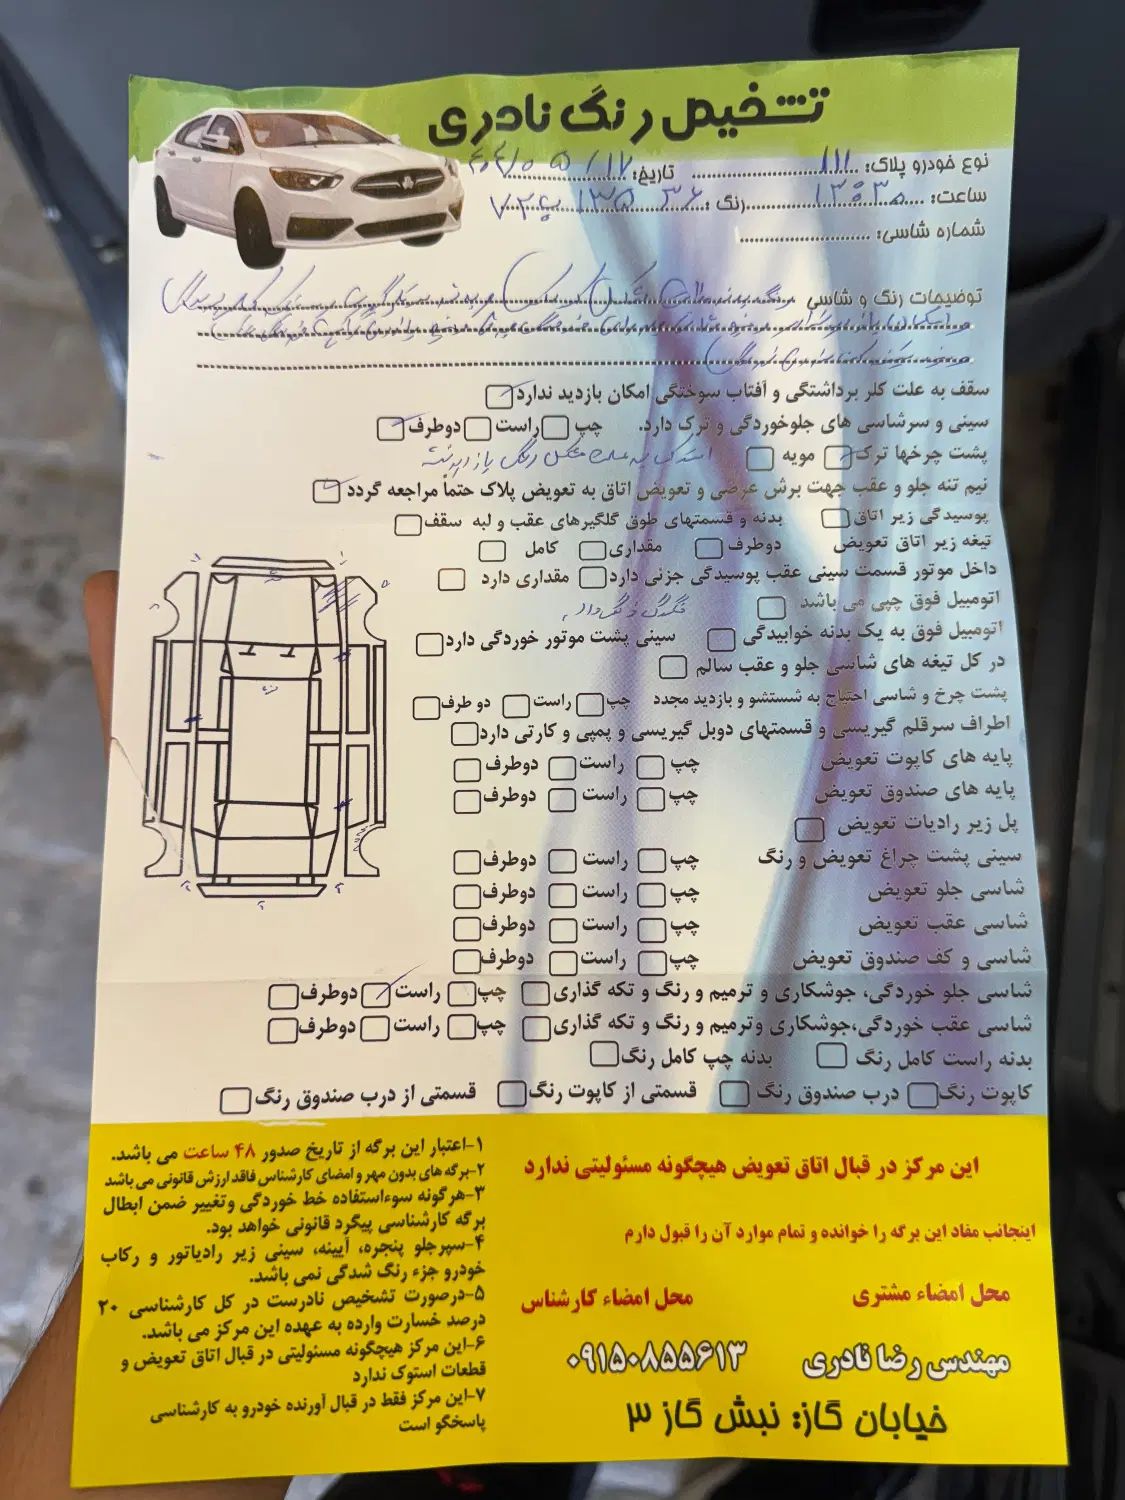 تشخیص رنگ نادری
نوع خودرو پلاک: ۱۱۱ تاریخ: ۵/۱۷
ساعت: ۱۳:۳۰ رنگ:
شماره شاسی:
توضیحات رنگ و شاسی
سقف به علت کلر برداشتگی و آفتاب سوختگی امکان بازدید ندارد
سینی و سرشاسی های جلوخوردگی و ترک دارد. چپ راست دوطرف
پشت چرخها ترک مویه
نیم تنه جلو و عقب جهت برش عرضی و تعویض اتاق به تعویض پلاک حتماً مراجعه گردد
پوسیدگی زیر اتاق بدنه و قسمتهای طوق گلگیرهای عقب و لبه سقف
تیغه زیر اتاق تعویض دوطرف مقداری کامل
داخل موتور قسمت سینی عقب پوسیدگی جزئی دارد مقداری دارد
اتومبیل فوق چپی می باشد
اتومبیل فوق به یک بدنه خوابیدگی سینی پشت موتور خوردگی دارد
در کل تیغه های شاسی جلو و عقب سالم
پشت چرخ و شاسی احتیاج به شستشو و بازدید مجدد چپ راست دو طرف
اطراف سرقلم گیریسی و قسمتهای دوبل گیریسی و پمپی و کارتی دارد
پایه های کاپوت تعویض چپ راست دوطرف
پایه های صندوق تعویض چپ راست دوطرف
پل زیر رادیات تعویض
سینی پشت چراغ تعویض و رنگ چپ راست دوطرف
شاسی جلو تعویض چپ راست دوطرف
شاسی عقب تعویض چپ راست دوطرف
شاسی و کف صندوق تعویض چپ راست دوطرف
شاسی جلو خوردگی، جوشکاری و ترمیم و رنگ و تکه گذاری چپ راست دوطرف
شاسی عقب خوردگی،جوشکاری وترمیم و رنگ و تکه گذاری چپ راست دوطرف
بدنه راست کامل رنگ بدنه چپ کامل رنگ
کاپوت رنگ درب صندوق رنگ قسمتی از کاپوت رنگ قسمتی از درب صندوق رنگ
این مرکز در قبال اتاق تعویض هیچگونه مسئولیتی ندارد
اینجانب مفاد این برگه را خوانده و تمام موارد آن را قبول دارم
محل امضاء مشتری محل امضاء کارشناس
مهندس رضا نادری ۰۹۱۵۰۸۵۵۶۱۳
خیابان گاز: نبش گاز ۳
۱-اعتبار این برگه از تاریخ صدور ۴۸ ساعت می باشد.
۲-برگه های بدون مهر و امضای کارشناس فاقد ارزش قانونی می باشد
۳-هرگونه سوءاستفاده خط خوردگی وتغییر ضمن ابطال
برگه کارشناسی پیگرد قانونی خواهد بود.
۴-سپرجلو پنجره، آیینه، سینی زیر رادیاتور و رکاب
خودرو جزء رنگ شدگی نمی باشد.
۵-درصورت تشخیص نادرست در کل کارشناسی ۲۰
درصد خسارت وارده به عهده این مرکز می باشد.
۶-این مرکز هیچگونه مسئولیتی در قبال اتاق تعویض و
قطعات استوک ندارد
۷-این مرکز فقط در قبال آورنده خودرو به کارشناسی
پاسخگو است